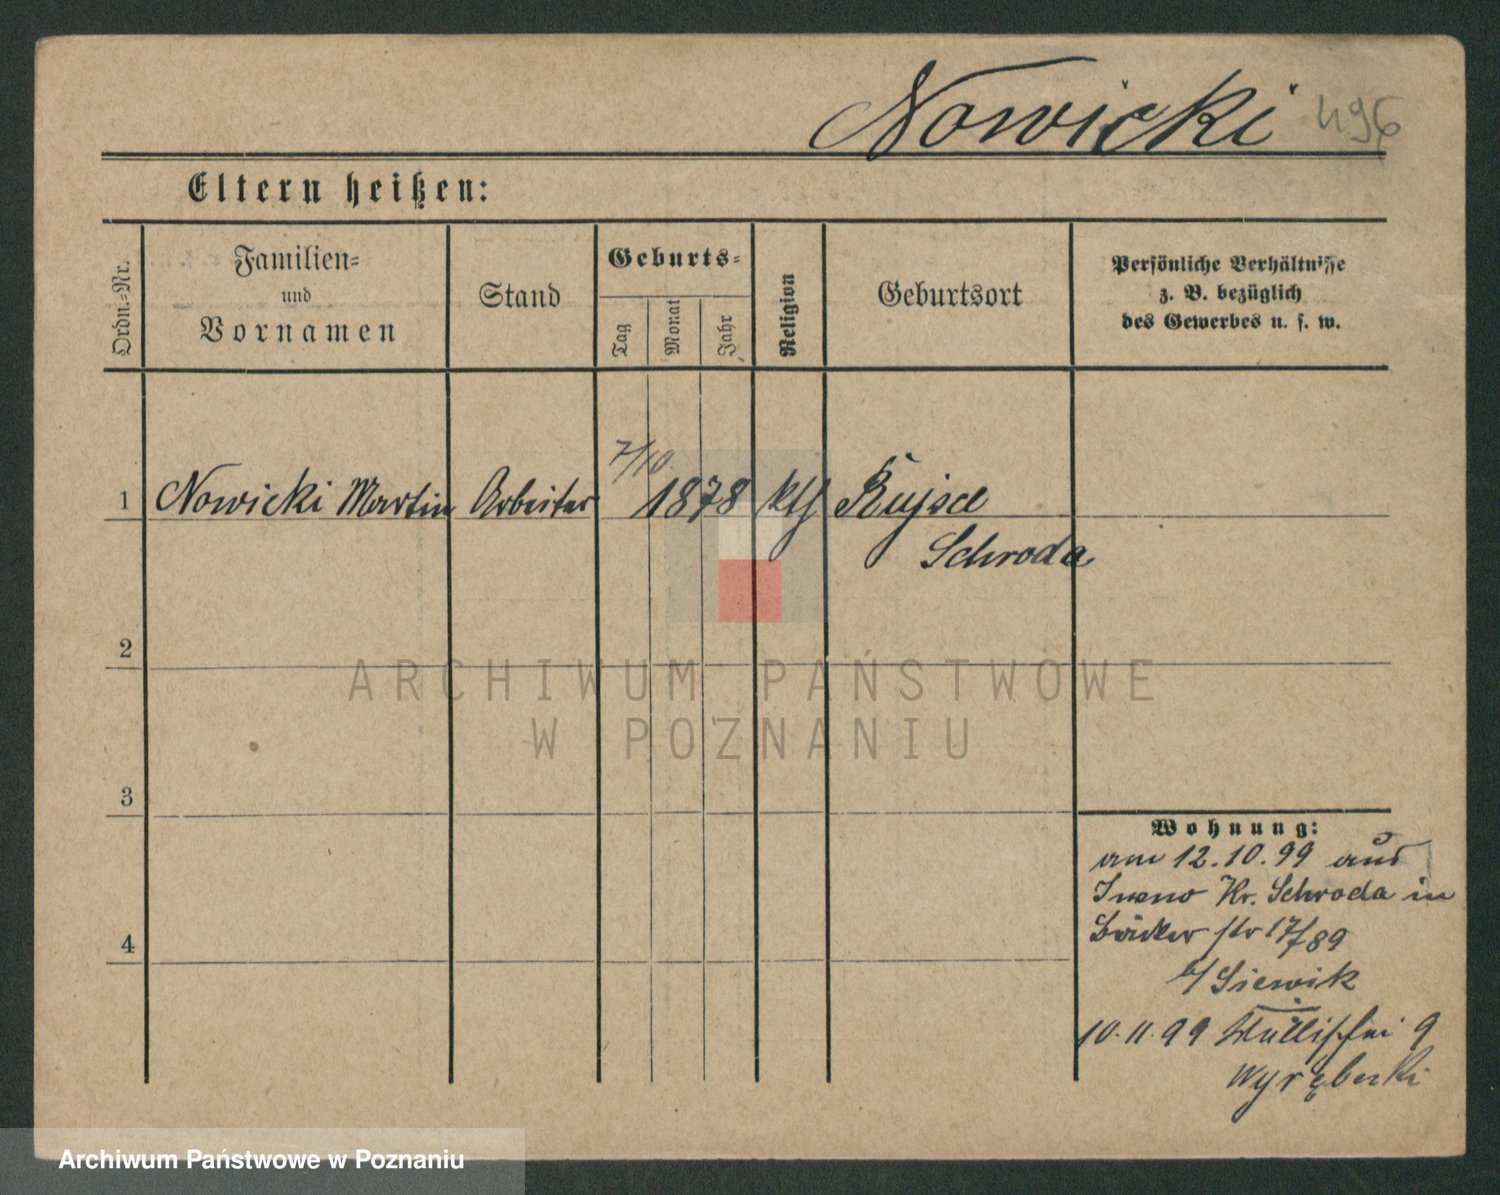 Nowicki 496
Eltern heißen:
Ordn.-Nr.
Familien-
und
Vornamen
Stand
Geburts-
Tag
Monat
Jahr
Religion
Geburtsort
Persönliche Verhältnisse
z. B. bezüglich
des Gewerbes u. s. w.
7/10
1 Nowicki Martin Arbeiter 1878 kth Rujsce
Schroda
2
ARCHIWUM PAŃSTWOWE
W POZNANIU
3
Wohnung:
am 12.10.99 aus
Kr. Schroda in
Bäcker str 17/89
b/ Siewik
4
10.11.99 9
Wyrębski
Archiwum Państwowe w Poznaniu